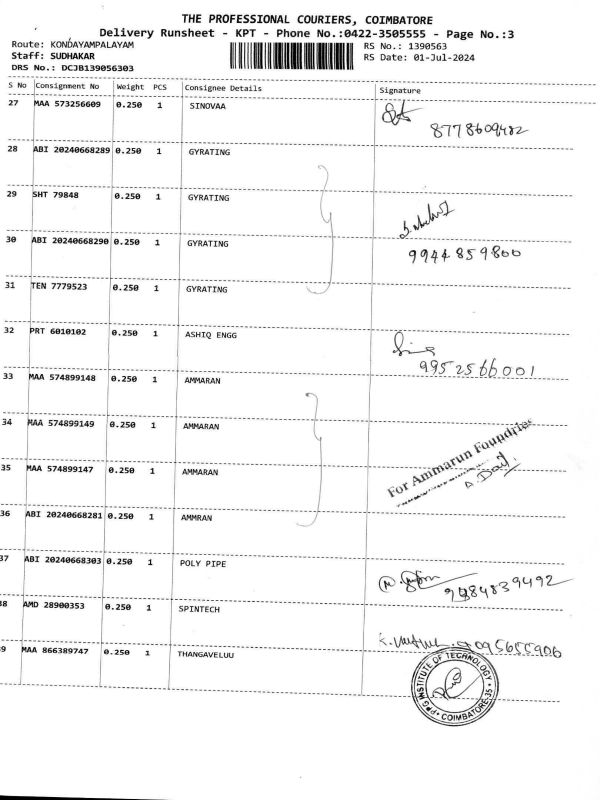 THE PROFESSIONAL COURIERS, COIMBATORE
Delivery Runsheet - KPT - Phone No.:0422-3505555 - Page No.:3
Route: KONDAYAMPALAYAM
Staff: SUDHAKAR
DRS No.: DCJB139056303
RS No.: 1390563
RS Date: 01-Jul-2024
S No Consignment No Weight PCS Consignee Details Signature
27 MAA 573256609 0.250 1 SINOVAA
8778609482
28 ABI 20240668289 0.250 1 GYRATING
29 SHT 79848 0.250 1 GYRATING
30 ABI 20240668290 0.250 1 GYRATING
9944859800
31 TEN 7779523 0.250 1 GYRATING
32 PRT 6010102 0.250 1 ASHIQ ENGG
9952566001
33 MAA 574899148 0.250 1 AMMARAN
34 MAA 574899149 0.250 1 AMMARAN
For Ammarun Foundries
35 MAA 574899147 0.250 1 AMMARAN
36 ABI 20240668281 0.250 1 AMMRAN
37 ABI 20240668303 0.250 1 POLY PIPE
38 AMD 28900353 0.250 1 SPINTECH
39 MAA 866389747 0.250 1 THANGAVELUU
PPG INSTITUTE OF TECHNOLOGY
COIMBATORE-35